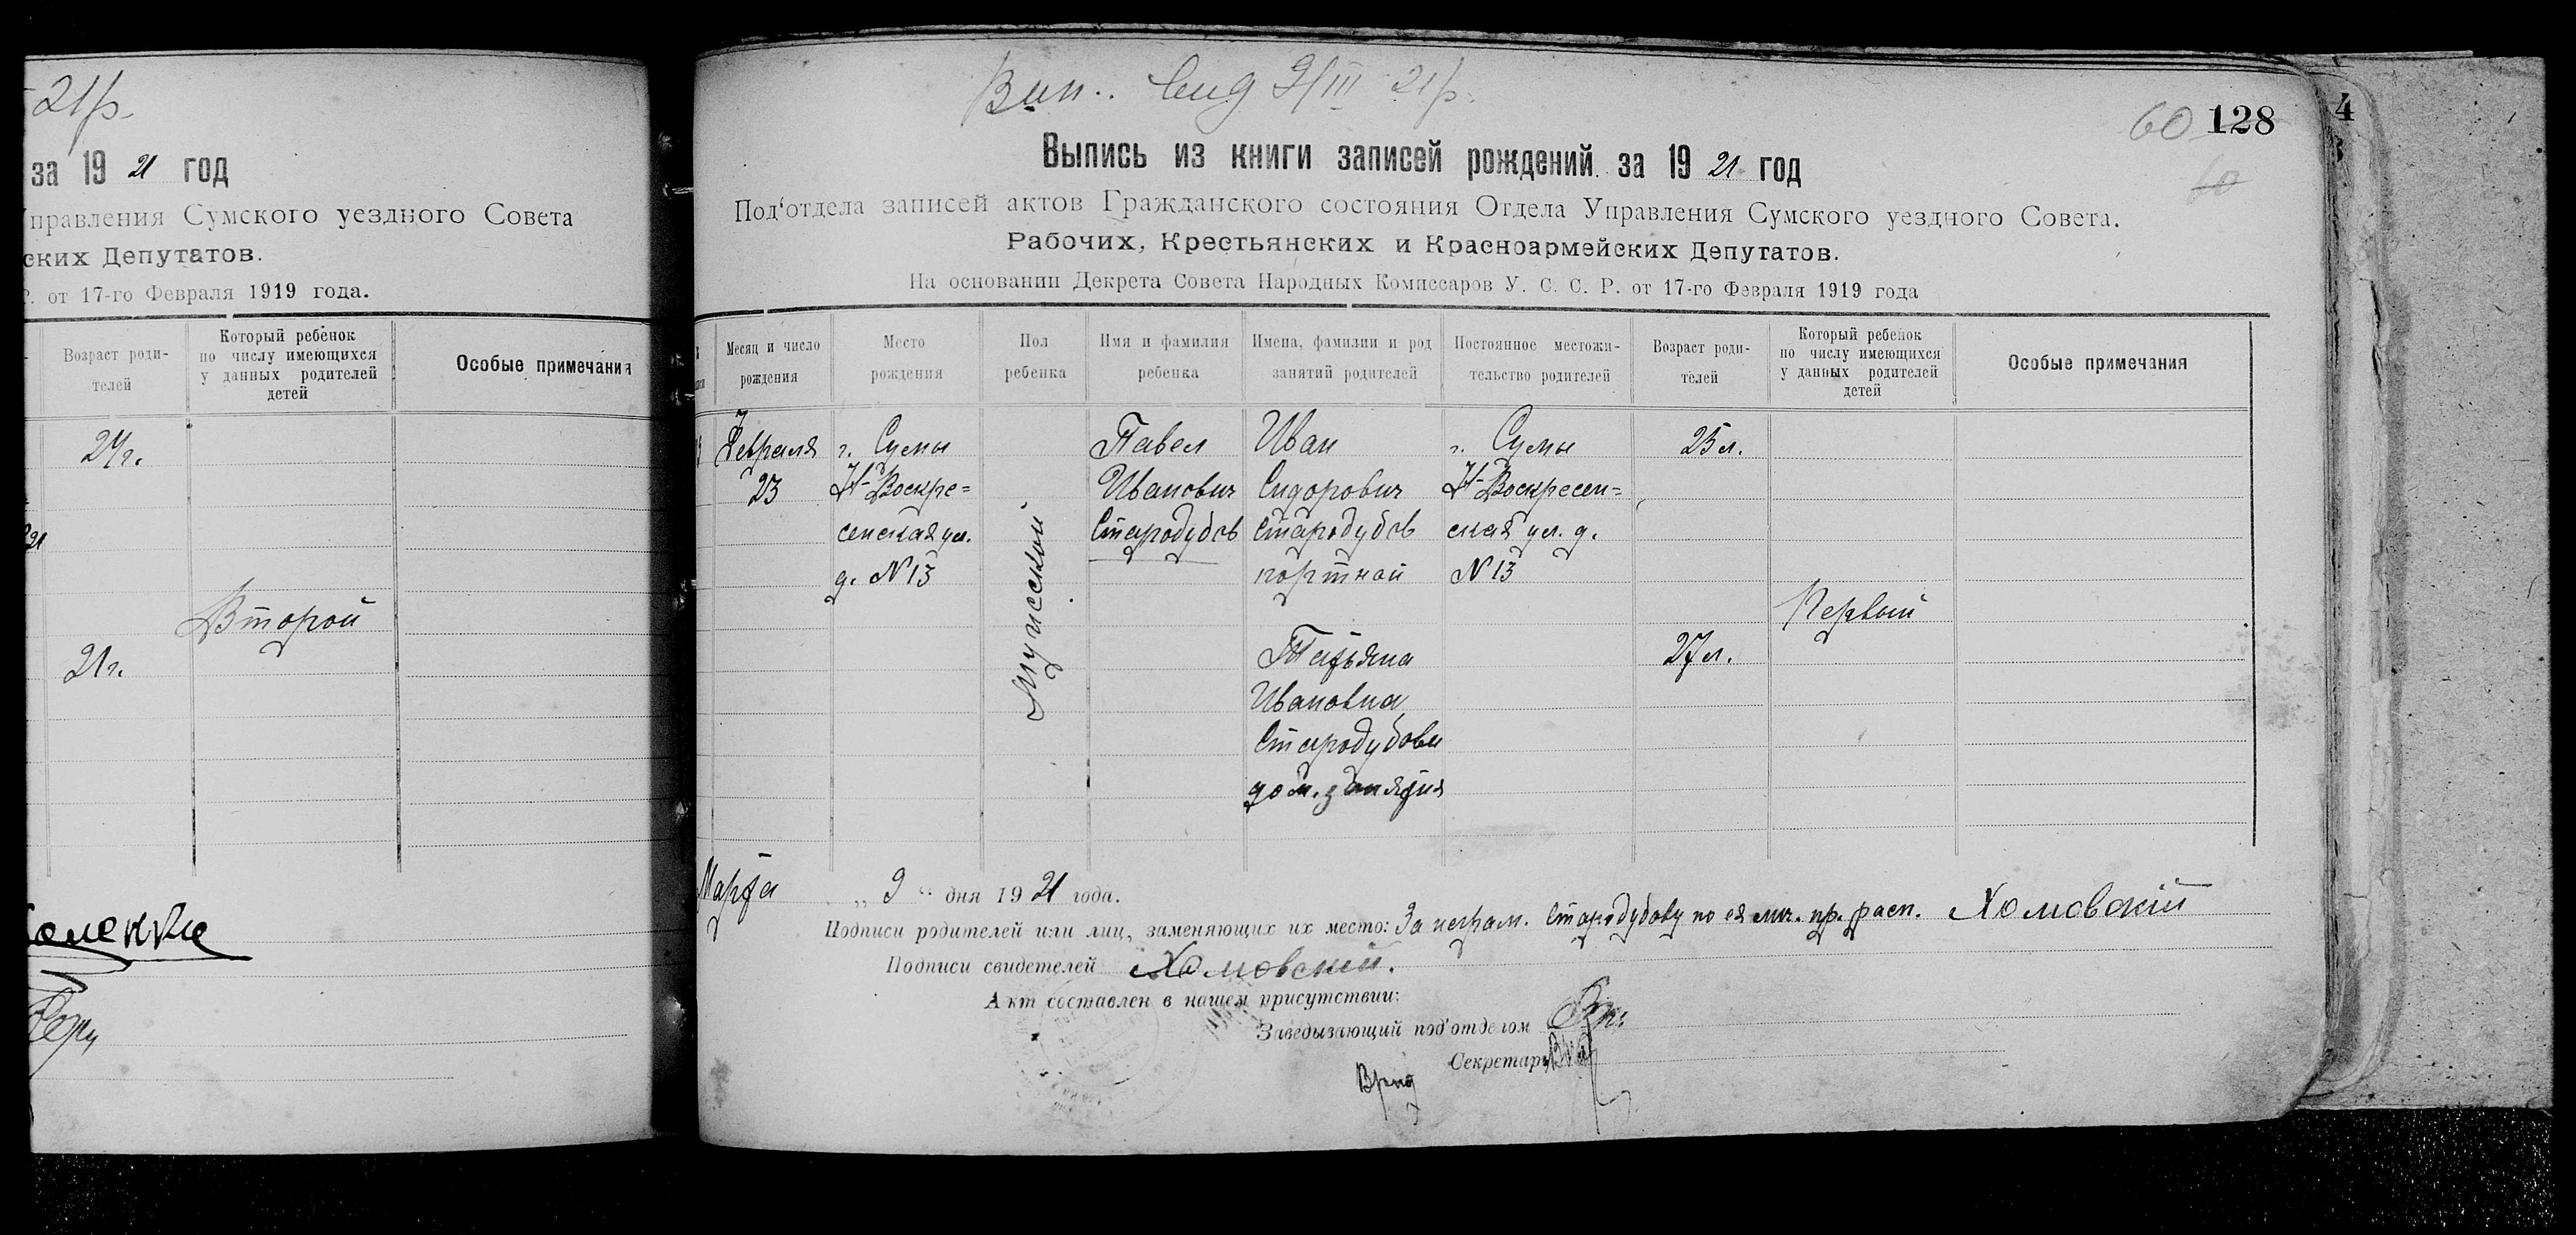 21р.
за 19 21 год
Управления Сумского уездного Совета
ских Депутатов.
Р. от 17-го Февраля 1919 года.
Возраст роди-
телей
Который ребенок
по числу имеющихся
у данных родителей
детей
Особые примечания
24г.
21
Второй
21г.
Вип. 9/III 21р.
60 128
60
Выпись из книги записей рождений за 19 21 год
Под‘отдела записей актов Гражданского состояния Отдела Управления Сумского уездного Совета.
Рабочих, Крестьянских и Красноармейских Депутатов.
На основании Декрета Совета Народных Комиссаров У. С. С. Р. от 17-го Февраля 1919 года
Месяц и число
рождения
Место
рождения
Пол
ребенка
Имя и фамилия
ребенка
Имена, фамилии и род
занятий родителей
Постоянное местожи-
тельство родителей
Возраст роди-
телей
Который ребенок
по числу имеющихся
у данных родителей
детей
Особые примечания
Февраля
23
г. Сумы
Н-Воскре=
сенская ул.
д. N 13
Мужской
Павел
Иванович
Стародубов
Иван
Сидорович
Стародубов
портной
Татьяна
Ивановна
Стародубова
дом. занятия
г. Сумы
Н-Воскресен=
ская ул. д.
N 13
25 л.
27 л.
Первый
Марта „ 9 “ дня 19 21 года.
Подписи родителей или лиц, заменяющих их место: За неграм. Стародубову по ея лич. пр. расп. Хомовский
Подписи свидетелей Хомовский.
Акт составлен в нашем присутствии:
Заведывающий под‘отделом
Секретарь
Врид